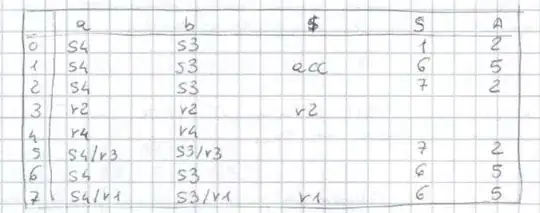 a b $ S A
0 S4 S3 1 2
1 S4 S3 acc 6 5
2 S4 S3 7 2
3 r2 r2 r2
4 r4 r4
5 S4/r3 S3/r3 7 2
6 S4 S3 6 5
7 S4/r1 S3/r1 r1 6 5